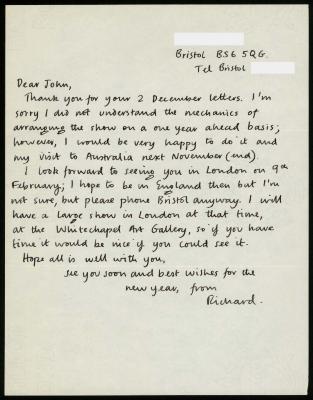 Bristol BS6 5QG.
Tel Bristol
Dear John,
Thank you for your 2 December letters. I'm
sorry I did not understand the mechanics of
arranging the show on a one year ahead basis;
however, I would be very happy to do it and
my visit to Australia next November (end).
I look forward to seeing you in London on 9th
February; I hope to be in England then but I'm
not sure, but please phone Bristol anyway. I will
have a large show in London at that time,
at the Whitechapel Art Gallery, so if you have
time it would be nice if you could see it.
Hope all is well with you,
see you soon and best wishes for the
new year, from
Richard.